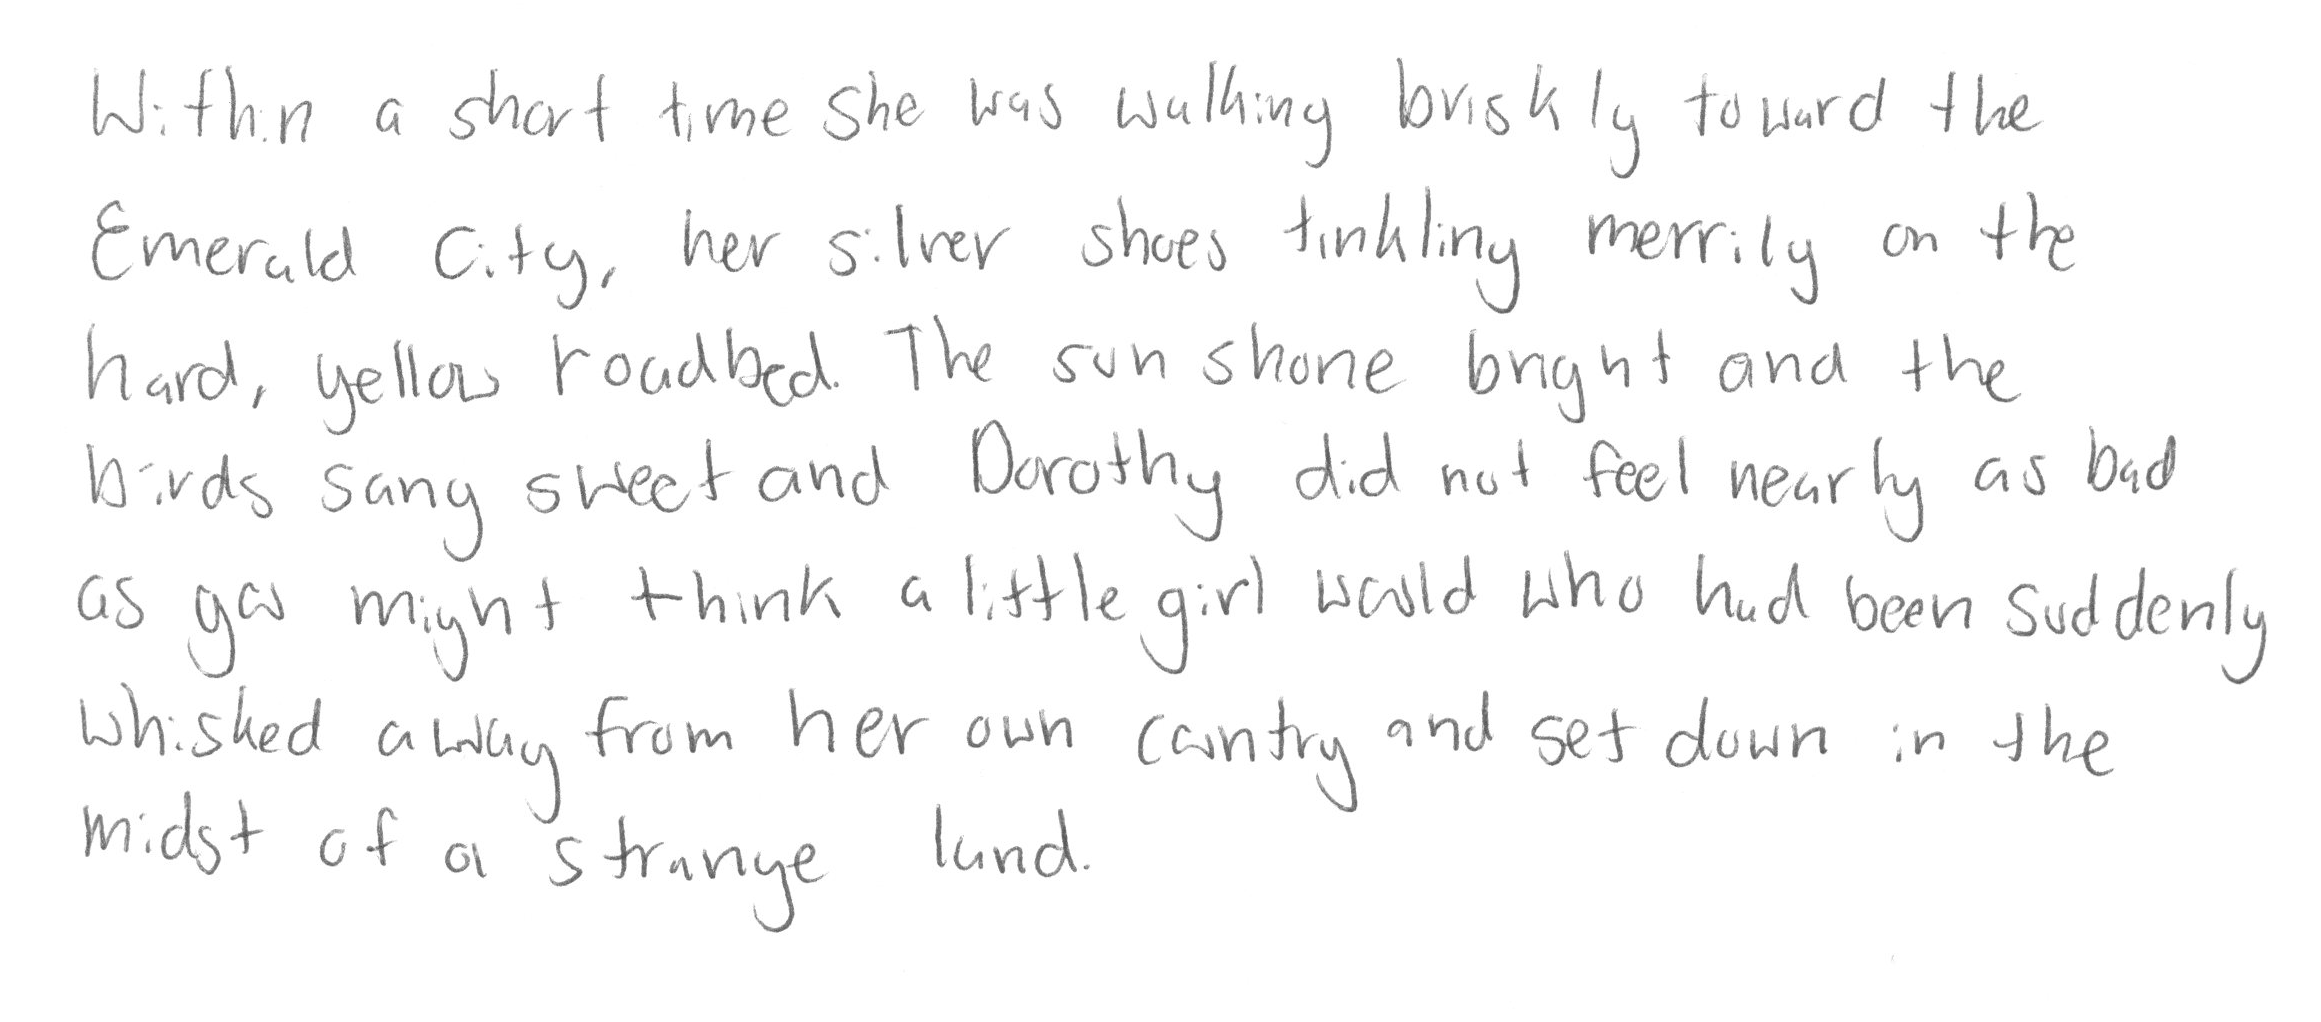 Within a short time she was walking briskly toward the
Emerald City, her silver shoes tinkling merrily on the
hard, yellow roadbed. The sun shone bright and the
birds sang sweet and Dorothy did not feel nearly as bad
as you might think a little girl would who had been suddenly
whisked away from her own country and set down in the
midst of a strange land.